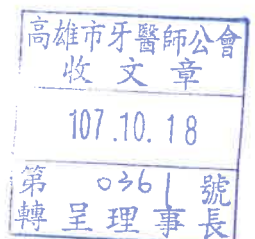 高雄市牙醫師公會
收文章
107.10.18
第 0361 號
轉呈理事長